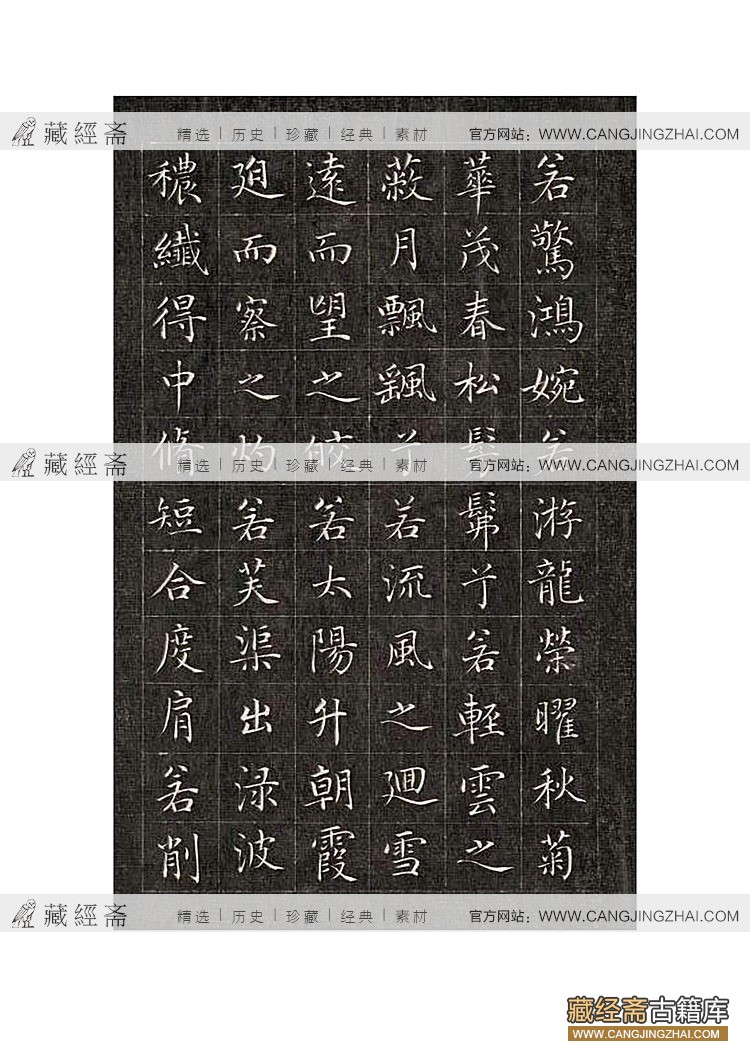 若驚鴻婉若游龍榮曜秋菊
華茂春松髣髴兮若輕雲之
蔽月飄颻兮若流風之迴雪
遠而望之皎若太陽升朝霞
迫而察之灼若芙渠出淥波
穠纖得中脩短合度肩若削
藏經斋 精选 | 历史 | 珍藏 | 经典 | 素材 官方网站：WWW.CANGJINGZHAI.COM
藏經斋 精选 | 历史 | 珍藏 | 经典 | 素材 官方网站：WWW.CANGJINGZHAI.COM
藏經斋 精选 | 历史 | 珍藏 | 经典 | 素材 官方网站：WWW.CANGJINGZHAI.COM
藏经斋古籍库
WWW.CANGJINGZHAI.COM